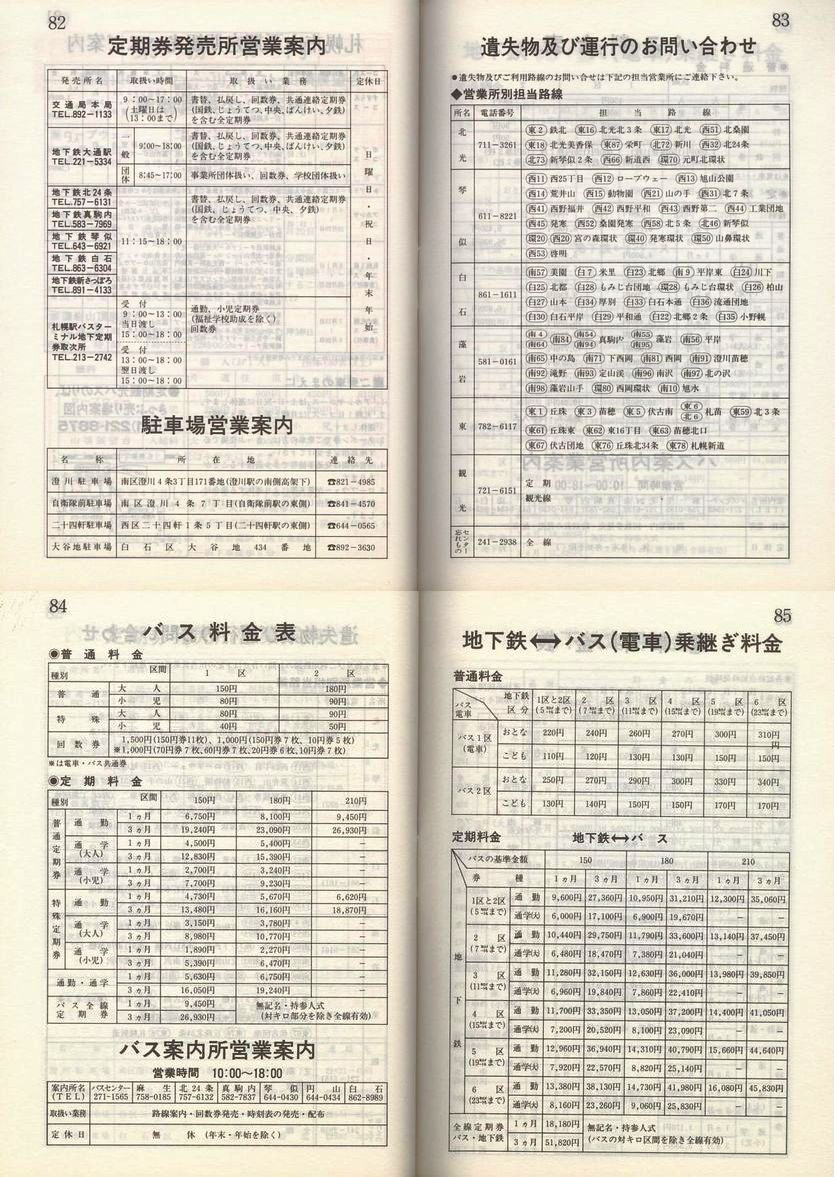 82
定期券発売所営業案内
発売所名 取扱い時間 取扱い業務 定休日
交通局本局 TEL.892-1133
9:00~17:00
(土曜日は
13:00まで)
書替、払戻し、回数券、共通連絡定期券
(国鉄、じょうてつ、中央、ばんけい、夕鉄)
を含む全定期券
地下鉄大通駅 TEL.221-5334
一般 9:00~18:00
書替、払戻し、回数券、共通連絡定期券
(国鉄、じょうてつ、中央、ばんけい、夕鉄)
を含む全定期券
団体 8:45~17:00 事業所団体扱い、回数券、学校団体扱い
地下鉄北24条 TEL.757-6131
地下鉄真駒内 TEL.583-7969
地下鉄琴似 TEL.643-6921
地下鉄白石 TEL.863-6304
地下鉄新さっぽろ TEL.891-4133
11:15~18:00
書替、払戻し、回数券、共通連絡定期券
(国鉄、じょうてつ、中央、ばんけい、夕鉄)
を含む全定期券
札幌駅バスターミナル地下定期券取次所 TEL.213-2742
受付
9:00~13:00
当日渡し
15:00~18:00
受付
13:00~18:00
翌日渡し
15:00~18:00
通勤、小児定期券
(福祉学校助成を除く)
回数券
日曜日・祝日・年末年始
駐車場営業案内
名称 所在地 連絡先
澄川駐車場 南区澄川4条3丁目171番地(澄川駅の南側高架下) ☎821-4985
自衛隊前駐車場 南区澄川4条7丁目(自衛隊前駅の東側) ☎841-4570
二十四軒駐車場 西区二十四軒1条5丁目(二十四軒駅の東側) ☎644-0565
大谷地駐車場 白石区大谷地434番地 ☎892-3630
83
遺失物及び運行のお問い合わせ
●遺失物及びご利用路線のお問い合せは下記の担当営業所にご連絡下さい。
◆営業所別担当路線
所名 電話番号 担当路線
北光 711-3261
東2 鉄北 東16 北光北3条 東17 北光 西51 北桑園
東18 北光美香保 東87 栄町 北72 新川 西32 北24条
北73 新琴似2条 西66 新道西 環70 元町北環状
琴似 611-8221
西11 西25丁目 西12 ロープウェー 西13 旭山公園
西14 荒井山 西15 動物園 西21 山の手 西31 北7条
西41 西野福井 西42 西野平和 西43 西野第二 西44 工業団地
西45 発寒 西52 桑園発寒 西58 北5条 北46 新琴似
環20 西20 宮の森環状 環40 発寒環状 環50 山鼻環状
西53 啓明
白石 861-1611
南57 美園 白7 米里 白23 北郷 南9 平岸東 白24 川下
白25 北都 白28 もみじ台団地 環28 もみじ台環状 白26 柏山
白27 山本 白34 厚別 白33 白石本通 白36 流通団地
白30 白石平岸 白29 平和通 白22 北郷2条 白35 小野幌
藻岩 581-0161
南4 南64 南84 南54 真駒内 南55 南95 藻岩 南56 平岸
南65 中の島 南71 下西岡 南81 西岡 南91 澄川苗穂
南92 滝野 南93 定山渓 南96 南沢 南97 北の沢
南98 藻岩山手 環80 西岡環状 南10 旭水
東 782-6117
東1 丘珠 東3 苗穂 東5 伏古南 東6 北6 札苗 東59 北3条
東61 丘珠東 東62 東16丁目 東63 苗穂北口
東67 伏古団地 東76 丘珠北34条 東78 札幌新道
観光 721-6151
定期
観光線
忘れものセンター 241-2938 全線
84
バス料金表
◉普通料金
種別 区間 1区 2区
普通 大人 150円 180円
小児 80円 90円
特殊 大人 80円 90円
小児 40円 50円
回数券 1,500円(150円券11枚)、1,000円(150円券7枚、10円券5枚)
※1,000円(70円券7枚、60円券7枚、20円券6枚、10円券7枚)
※は電車・バス共通券
◉定期料金
種別 区間 150円 180円 210円
普通定期券 通勤 1ヵ月 6,750円 8,100円 9,450円
3ヵ月 19,240円 23,090円 26,930円
通学(大人) 1ヵ月 4,500円 5,400円 ―
3ヵ月 12,830円 15,390円 ―
通学(小児) 1ヵ月 2,700円 3,240円 ―
3ヵ月 7,700円 9,230円 ―
特殊定期券 通勤 1ヵ月 4,730円 5,670円 6,620円
3ヵ月 13,480円 16,160円 18,870円
通学(大人) 1ヵ月 3,150円 3,780円 ―
3ヵ月 8,980円 10,770円 ―
通学(小児) 1ヵ月 1,890円 2,270円 ―
3ヵ月 5,390円 6,470円 ―
通勤・通学 1ヵ月 5,630円 6,750円 ―
3ヵ月 16,050円 19,240円 ―
バス全線定期券 1ヵ月 9,450円 無記名・持参人式
3ヵ月 26,930円 (対キロ部分を除き全線有効)
バス案内所営業案内
営業時間 10:00~18:00
案内所名 バスセンター 麻生 北24条 真駒内 琴似 円山 白石
(TEL) 271-1565 758-0185 757-6132 582-7837 644-0430 644-0434 862-8989
取扱い業務 路線案内・回数券発売・時刻表の発売・配布
定休日 無休 (年末・年始を除く)
85
地下鉄⟷バス(電車)乗継ぎ料金
普通料金
バス電車 地下鉄区分 1区と2区(5㎞まで) 2区(7㎞まで) 3区(11㎞まで) 4区(15㎞まで) 5区(19㎞まで) 6区(23㎞まで)
バス1区(電車) おとな 220円 240円 260円 270円 300円 310円
円
こども 110円 120円 130円 130円 150円 150円
バス2区 おとな 250円 270円 290円 300円 330円 340円
こども 130円 140円 150円 150円 170円 170円
定期料金 地下鉄⟷バス
バスの基準金額 150 180 210
券種 1ヵ月 3ヵ月 1ヵ月 3ヵ月 1ヵ月 3ヵ月
地下鉄
1区と2区(5㎞まで) 通勤 9,600円 27,360円 10,950円 31,210円 12,300円 35,060円
通学(大) 6,000円 17,100円 6,900円 19,670円 ― ―
2区(7㎞まで) 通勤 10,440円 29,750円 11,790円 33,600円 13,140円 37,450円
通学(大) 6,480円 18,470円 7,380円 21,040円 ― ―
3区(11㎞まで) 通勤 11,280円 32,150円 12,630円 36,000円 13,980円 39,850円
通学(大) 6,960円 19,840円 7,860円 22,410円 ― ―
4区(15㎞まで) 通勤 11,700円 33,350円 13,050円 37,200円 14,400円 41,050円
通学(大) 7,200円 20,520円 8,100円 23,090円 ― ―
5区(19㎞まで) 通勤 12,960円 36,940円 14,310円 40,790円 15,660円 44,640円
通学(大) 7,920円 22,570円 8,820円 25,140円 ― ―
6区(23㎞まで) 通勤 13,380円 38,130円 14,730円 41,980円 16,080円 45,830円
通学(大) 8,160円 23,260円 9,060円 25,830円 ― ―
全線定期券バス・地下鉄 1ヵ月 18,180円 無記名・持参人式
3ヵ月 51,820円 (バスの対キロ区間を除き全線有効)